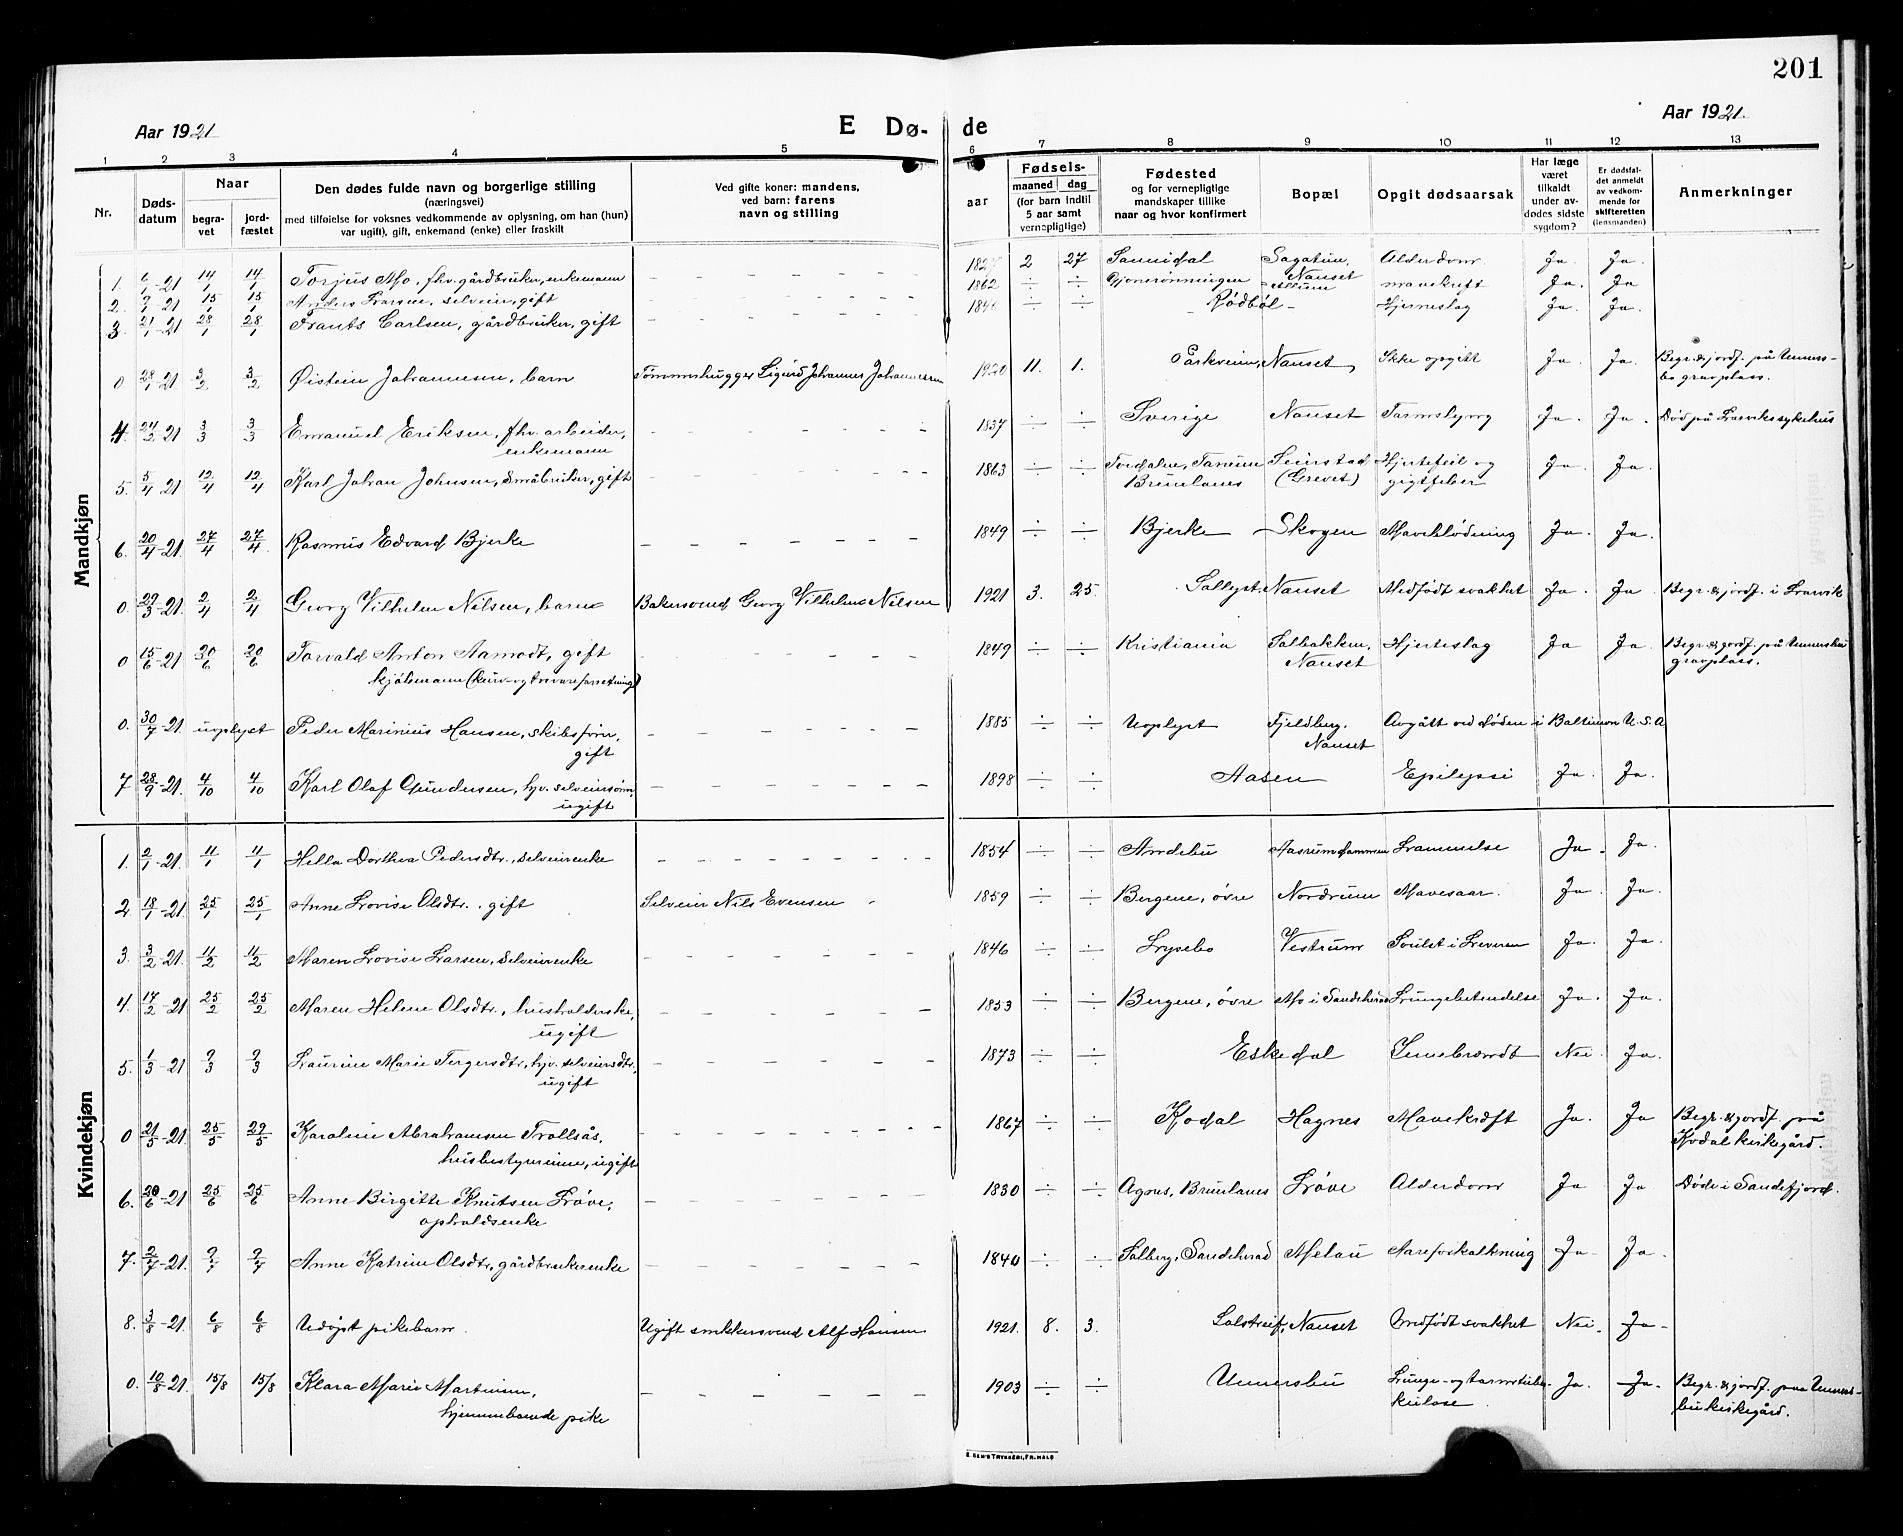 201
Aar 1921 E Dø- de Aar 1921.
1 2 3 4 5 6 7 8 9 10 11 12 13
Nr.
Døds-
datum
Naar
begra-
vet
jord-
fæstet
Den dødes fulde navn og borgerlige stilling
(næringsvei)
med tilføielse for voksnes vedkommende av oplysning, om han (hun)
var ugift), gift, enkemand (enke) eller fraskilt
Ved gifte koner: mandens,
ved barn: farens
navn og stilling
aar
Fødsels-
maaned dag
(for barn indtil
5 aar samt
vernepligtige)
Fødested
og for vernepligtige
mandskaper tillike
naar og hvor konfirmert
Bopæl
Opgit dødsaarsak
Har læge
været
tilkaldt
under av-
dødes sidste
sygdom?
Er dødsfal-
det anmeldt
av vedkom-
mende for
skifteretten
(lensmanden)
Anmerkninger
Mandkjøn
1. 6/1-21 14/1 14/1 Torjus Mo, fhv. gårdbruker, enkemann – – – 2 27 Sannidal Sagatun, Nanset Alderdom Ja. Ja.
2. 9/1-21 15/1 15/1 Anders Larsen, selveier, gift – – – 1862 ÷ ÷ Gjønnerønningen Allum mavekreft Ja. Ja
3. 21/1-21 28/1 28/1 Frants Carlsen, gårdbruker, gift – – – ÷ ÷ – Rødbøl – Hjerneslag Ja. Ja.
0 28/1-21 3/2 3/2 Øistein Johannesen, barn Tømmerhugger Sigurd Johannes Johannesen 1920 11. 1. Parkveien, Nanset, Ikke opgitt Ja. Ja. Begr. & jordf. på Unners-
bo gravplass.
4. 24/2-21 3/3 3/3 Emanuel Eriksen, fhv. arbeider,
enkemann – – – 1837 ÷ ÷ Sverige Nanset Tarmslyng Ja. Ja. Død på Larviks sykehus
5. 5/4-21 12/4 12/4 Karl Johan Johnsen, Småbruker, gift – – – 1863 ÷ ÷ Tordalen, Tanum
Brunlanes Seierstad
(Grevet) Hjertefeil og
gigtfeber Ja. Ja.
6. 20/4-21 27/4 27/4 Rasmus Edvard Bjerke – – – 1849 ÷ ÷ Bjerke Skogen Maveblødning Ja. Ja.
0. 29/3-21. 2/4 2/4 Georg Vilhelm Nilsen, barn Bakersvend Georg Vilhelm Nilsen 1921 3. 25. Sollyst Nanset Medfødt svakhet Ja. Ja. Begr. & jordf. i Larvik
0 15/6-21 20/6 20/6 Torvald Anton Aamodt, gift
kjøbmann (kurv- og trevareforretning) – – – 1849 ÷ ÷ Kristiania Solbakken,
Nanset Hjerteslag Ja Ja. Begr. & jordf. på Unnersbu
gravplass.
0. 30/7-21. uoplyst Peder Marinius Hansen, skibsfører,
gift – – – 1885 ÷ ÷ Uoplyst Fjeldberg,
Nanset Avgått ved døden i Baltimore U.S.A
7 28/9-21. 4/10 4/10 Karl Olaf Gundersen, hjv. selveiersønn,
ugift – – – 1898 ÷ ÷ Aasen Epilepsi Ja. Ja.
Kvindekjøn
1. 2/1-21. 11/1 11/1 Hella Dorthea Pedersdtr., selveierenke – – – 1854 ÷ ÷ Andebu Aasrumdammen Lammelse Ja. Ja.
2 18/1-21 25/1 25/1 Anne Lovise Olsdtr., gift Selveier Nils Evensen 1859 ÷ ÷ Bergene, øvre Nordrum Mavesaar. Ja. Ja.
3. 3/2-21. 11/2 11/2 Maren Lovise Larsen, selveierenke – – – 1846 ÷ ÷ Lysebo Vestrum Svulst i Leveren Ja. Ja.
4. 17/2-21 25/2 25/2 Maren Helene Olsdtr., husholderske,
ugift – – – 1853 ÷ ÷ Bergene, øvre Mo i Sandeherad Lungebetendelse Ja. Ja.
5. 1/3-21 9/3 9/3 Laurine Marie Tergersdtr., hjv. selveiersdtr.,
ugift – – – 1873 ÷ ÷ Eskedal Nei. Ja.
0 21/5-21 25/5 29/5 Karoline Abrahamsen Trollsås,
husbestyrerinne, ugift – – – 1867 ÷ ÷ Kodal Hagnes Mavekræft Ja. Ja Begr. & jordf. på
Kodal kirkegård.
6. 20/6-21 25/6 25/6 Anne Birgitte Knutsen Løve,
opholdsenke – – – 1830 ÷ ÷ Agnes, Brunlanes Løve Alderdom Ja Ja Døde i Sandefjord.
7. 2/7-21. 9/7 9/7 Anne Katrine Olsdtr, gårdbrukerenke – – – 1840 ÷ ÷ Solberg, Sandeherad Melau Aareforkalkning Ja Ja.
8. 3/8-21. 6/8 6/8 Udøpt pikebarn. Ugift smikkersvend Alf Hansen 1921. 8. 3. Solstreif, Nanset Medfødt svakhet Nei. Ja.
0. 10/8-21. 15/8 15/8 Klara Marie Martinsen,
hjemmeboende pike – – – 1903 ÷ ÷ Unnersbu Lunge- og tarmtuber-
kulose. Ja. Ja. Begr. & jordf. paa Unners-
bu kirkegård.
TRYKKERI, FR.HALD